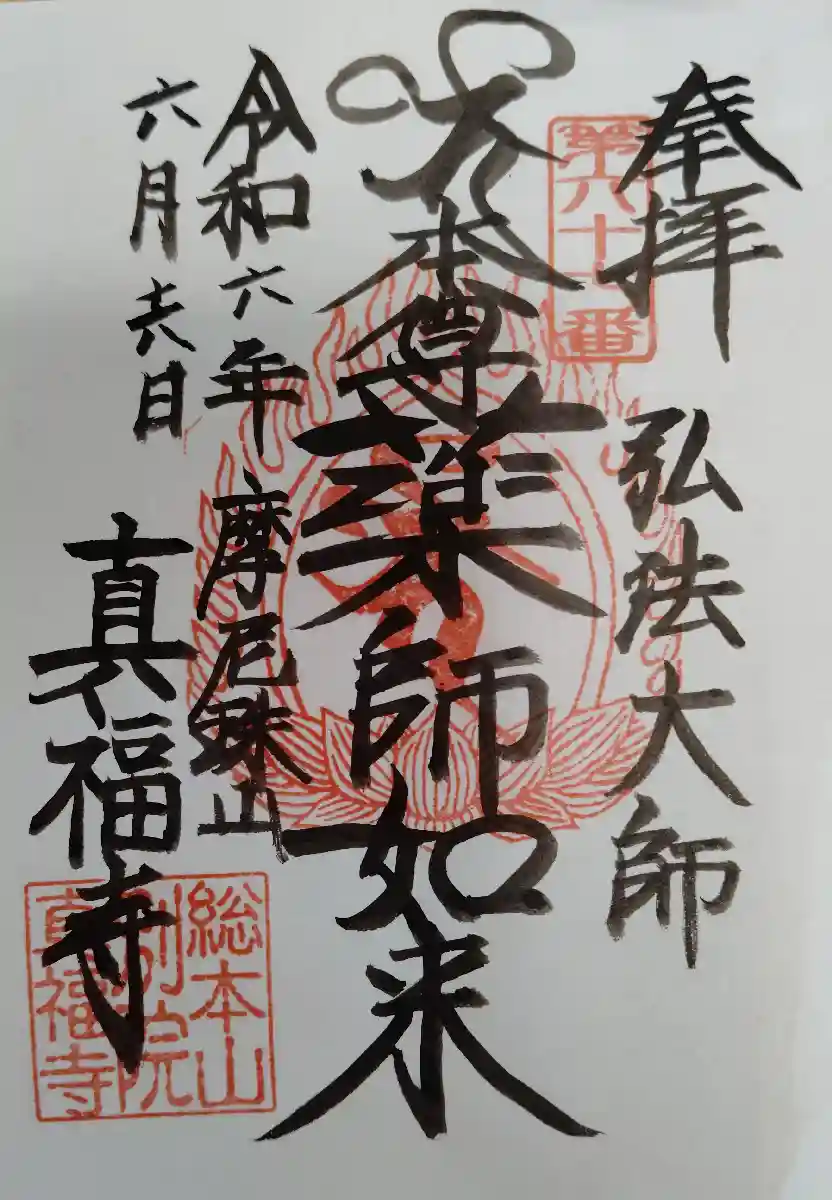 奉拝
第六十七番
弘法大師
本尊薬師如来
令和六年
六月十六日
摩尼珠山
真福寺
総本山
別院
真福寺